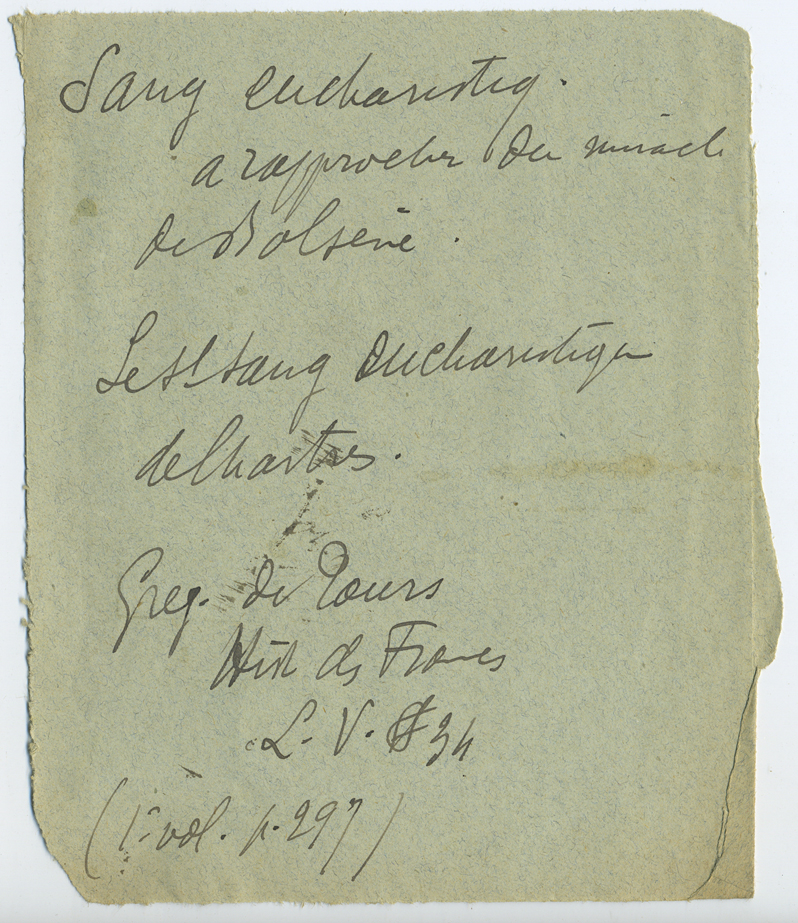 Sang eucharistiq.
a rapprocher du miracle
de Bolsène.
Le St Sang eucharistique
de Chartres.
Greg. de Tours
Hist des Francs
L. V. § 34
(1er vol. p. 297)